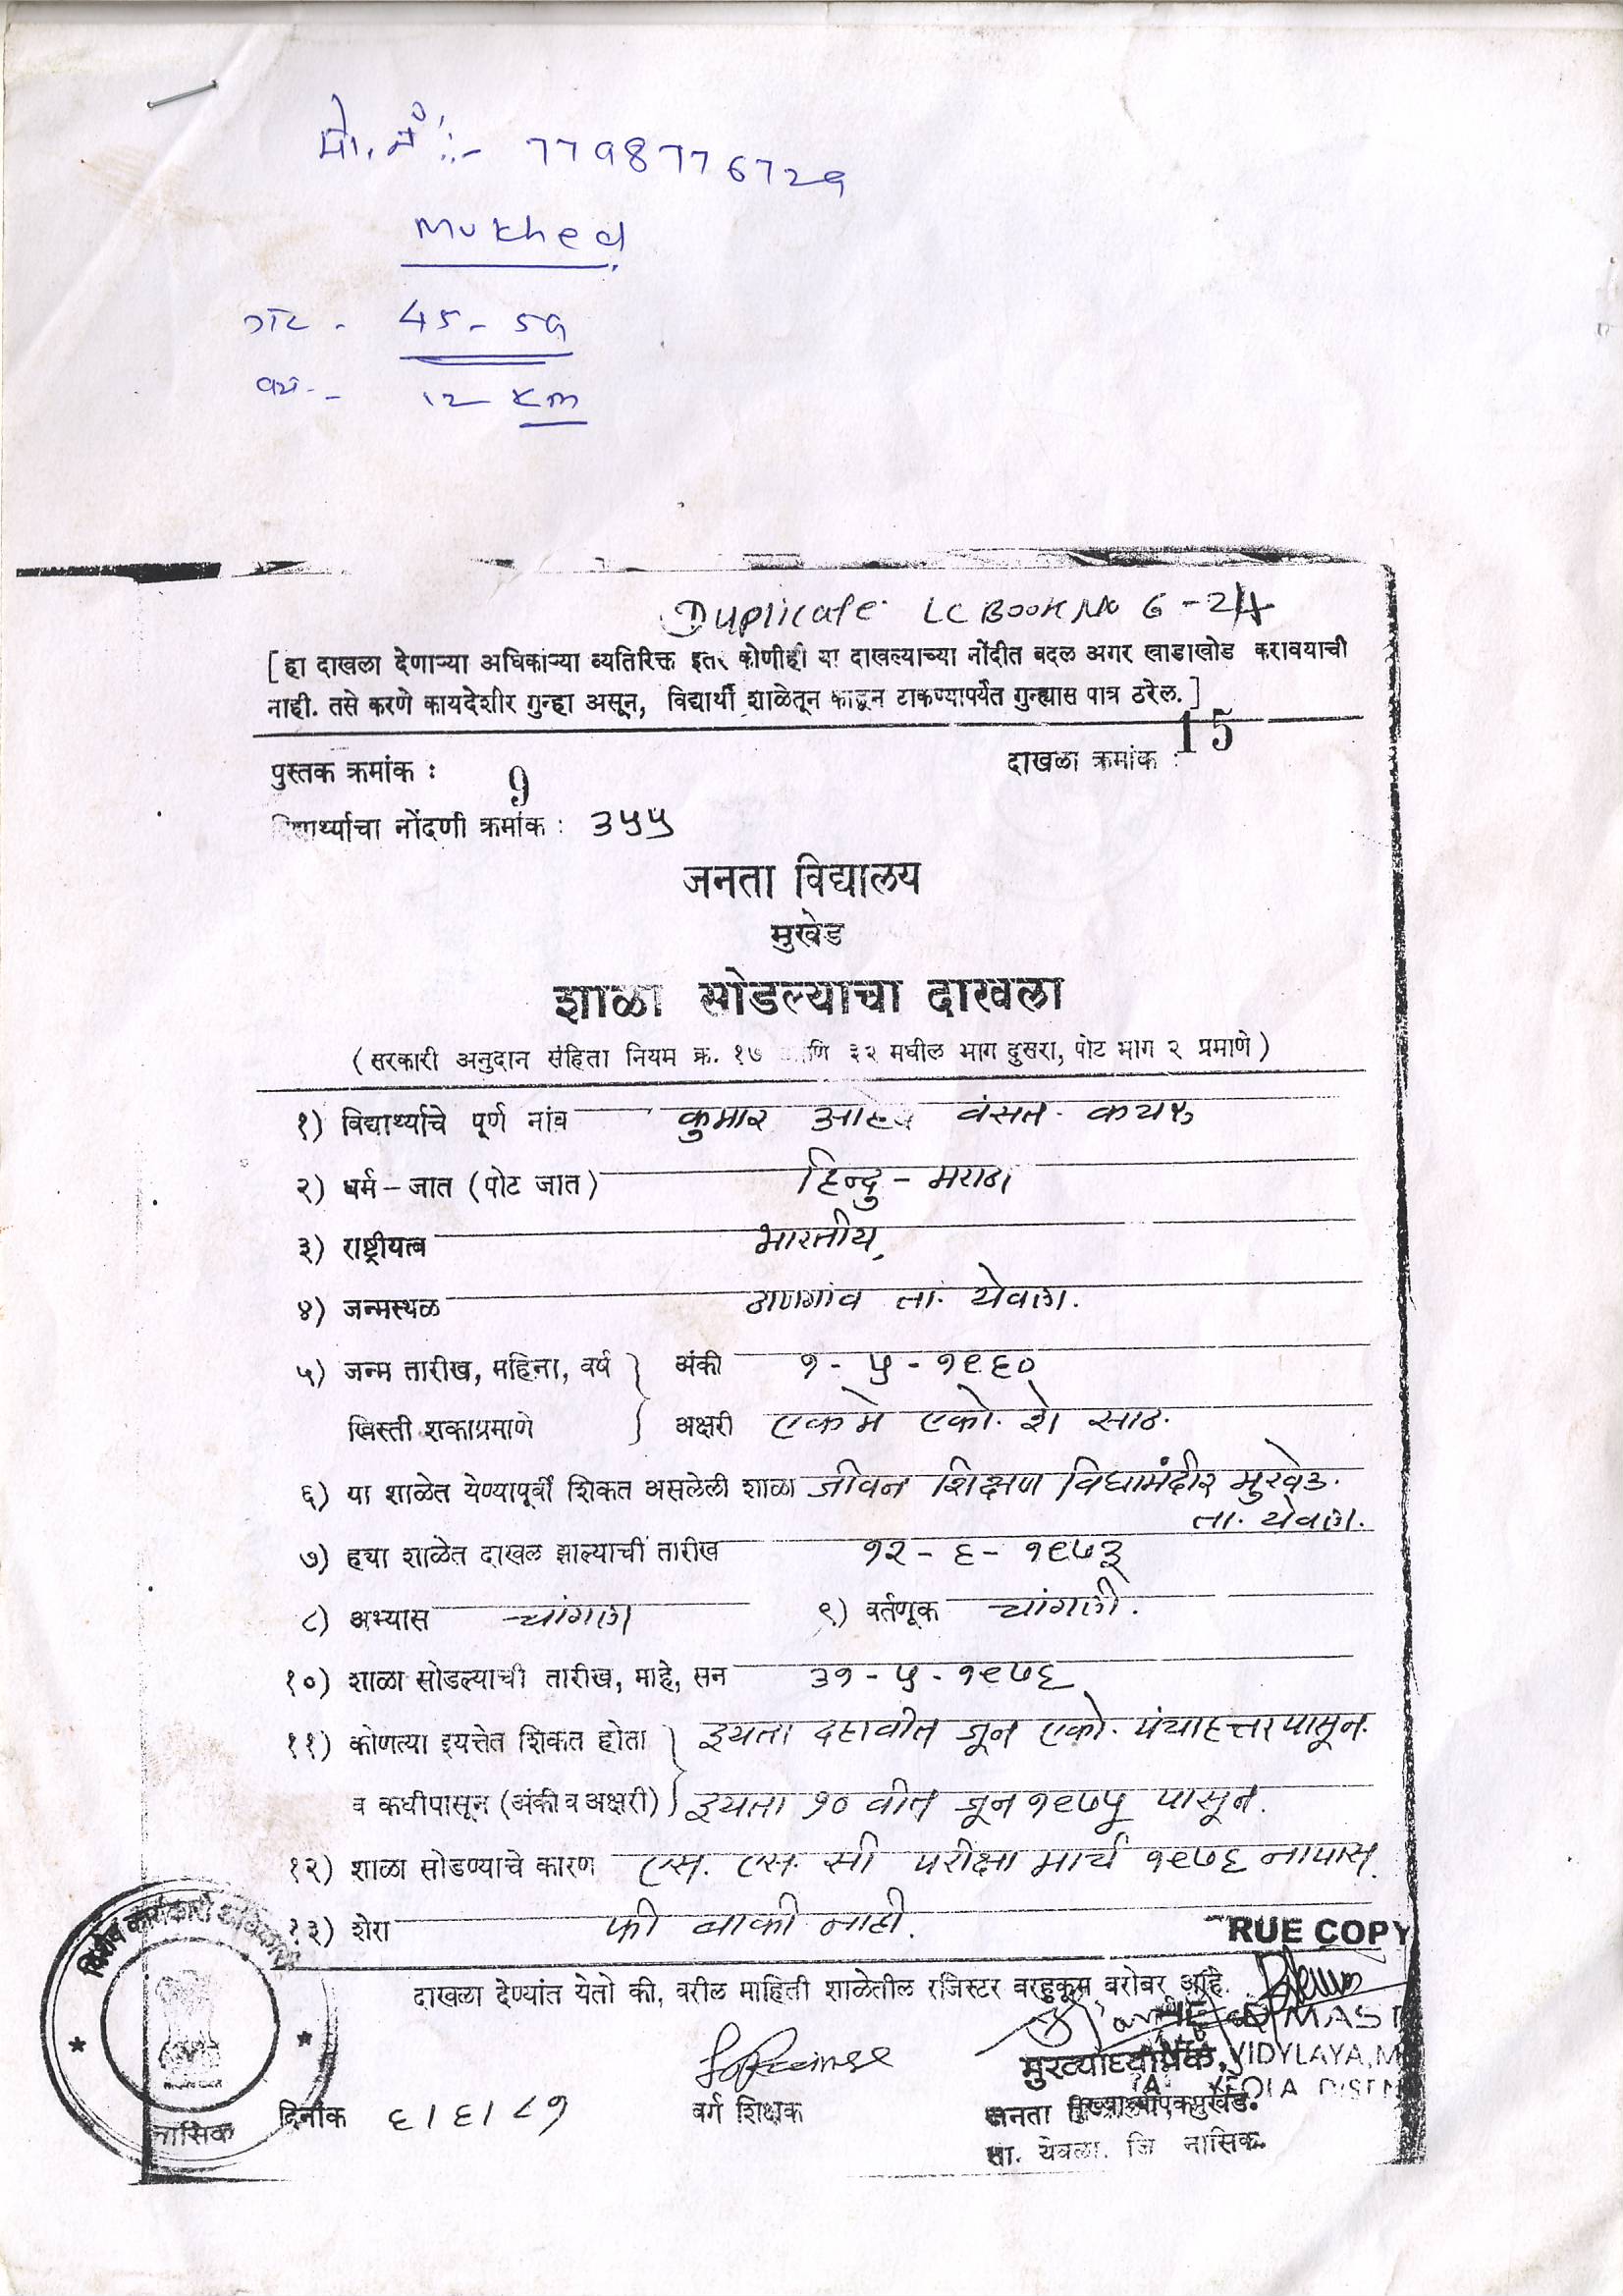 मो. नं :- 7798776729
Mukhed
गट - 45-59
वय - 12 km
Duplicate LC Book No 6-24
[ हा दाखला देणाऱ्या अधिकाऱ्या व्यतिरिक्त इतर कोणीही या दाखल्याच्या नोंदीत बदल अगर खाडाखोड करावयाची
नाही. तसे करणे कायदेशीर गुन्हा असून, विद्यार्थी शाळेतून काढून टाकण्यापर्यंत गुन्ह्यास पात्र ठरेल. ]
पुस्तक क्रमांक : 9 दाखला क्रमांक : 15
विद्यार्थ्याचा नोंदणी क्रमांक : ३५५
जनता विद्यालय
मुखेड
शाळा सोडल्याचा दाखला
( सरकारी अनुदान संहिता नियम क्र. १७ आणि ३२ मधील भाग दुसरा, पोट भाग २ प्रमाणे )
१) विद्यार्थ्याचे पूर्ण नांव कुमार आहेर वंसत
२) धर्म - जात ( पोट जात ) हिन्दु - मराठा
३) राष्ट्रीयत्व भारतीय
४) जन्मस्थळ ठाणगांव ता. येवला.
५) जन्म तारीख, महिना, वर्ष } अंकी १ - ५ - १९६०
खिस्ती शकाप्रमाणे } अक्षरी एक मे एको. शे साठ.
६) या शाळेत येण्यापूर्वी शिकत असलेली शाळा जीवन शिक्षण विद्यामंदीर मुखेड.
ता. येवला.
७) ह्या शाळेत दाखल झाल्याची तारीख १२ - ६ - १९७३
८) अभ्यास चांगला ९) वर्तणूक चांगली.
१०) शाळा सोडल्याची तारीख, माहे, सन ३१ - ५ - १९७६
११) कोणत्या इयत्तेत शिकत होता } इयता दहावीत जून एको. पंचाहत्तर पासून.
व कधीपासून (अंकी व अक्षरी) } इयता १० वीत जून १९७५ पासून.
१२) शाळा सोडण्याचे कारण एस. एस. सी परीक्षा मार्च १९७६ नापास.
१३) शेरा फी बाकी नाही.
RUE COPY
दाखला देण्यांत येतो की, वरील माहिती शाळेतील रजिस्टर बरहुकूम बरोबर आहे.
मुख्याध्यापक, VIDYLAYA, M
दिनांक ६/६/८१ वर्ग शिक्षक जनता मुखेड.
ता. येवला. जि नासिक.
विशेष कार्यकारी
नासिक